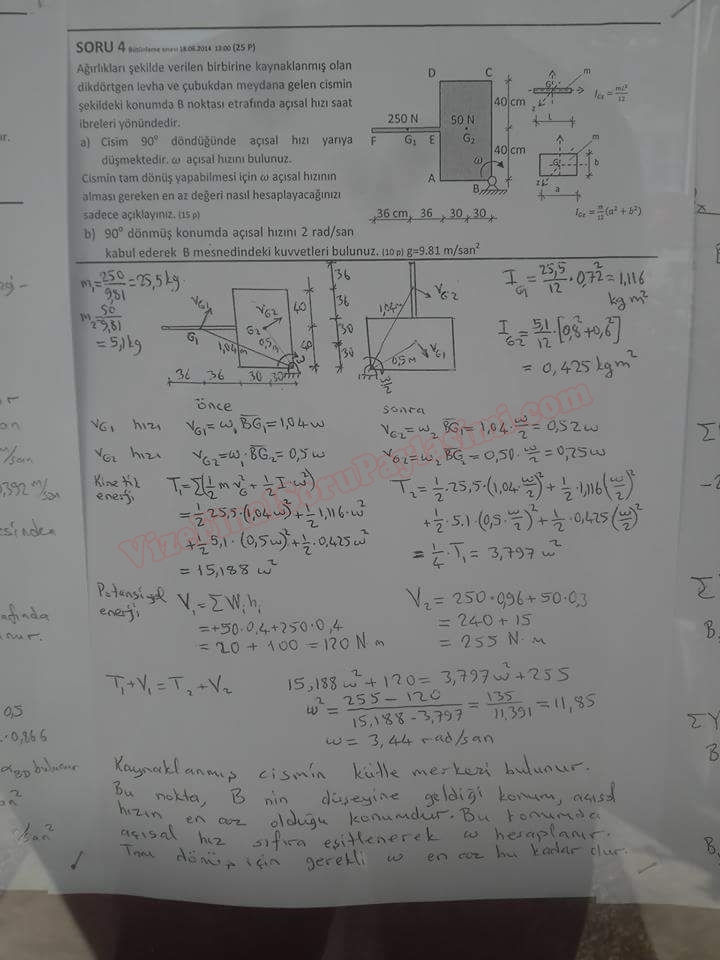 SORU 4 Bütünleme sınavı 18.06.2014 13:00 (25 P)
Ağırlıkları şekilde verilen birbirine kaynaklanmış olan
dikdörtgen levha ve çubukdan meydana gelen cismin
şekildeki konumda B noktası etrafında açısal hızı saat
ibreleri yönündedir.
a) Cisim 90° döndüğünde açısal hızı yarıya
düşmektedir. ω açısal hızını bulunuz.
Cismin tam dönüş yapabilmesi için ω açısal hızının
alması gereken en az değeri nasıl hesaplayacağınızı
sadece açıklayınız. (15 p)
b) 90° dönmüş konumda açısal hızını 2 rad/san
kabul ederek B mesnedindeki kuvvetleri bulunuz. (10 p) g=9.81 m/san²
D C
40 cm
250 N 50 N
F G₁ E G₂
40 cm
ω
A B
36 cm 36 30 30
G m
z L
I_Gz = mL²/12
m
G b
z a
I_Gz = m/12 (a² + b²)
m₁ = 250/9,81 = 25,5 kg
m₂ = 50/9,81
= 5,1 kg
V_G1 V_G2 40
G₁ G₂ 0,5m 40
1,04m ω
36 36 30 30
36
36
30
30
1,04m V_G2
0,5m V_G1
ω/2
I_G1 = 25,5/12 · 0,72² = 1,116
kg m²
I_G2 = 5,1/12 · [0,8² + 0,6²]
= 0,425 kg m²
önce sonra
V_G1 hızı V_G1 = ω₁ BG₁ = 1,04 ω V_G2 = ω₂ BG₁ = 1,04 · ω/2 = 0,52 ω
V_G2 hızı V_G2 = ω₁ · BG₂ = 0,5 ω V_G2 = ω₂ BG₂ = 0,50 · ω/2 = 0,25 ω
Kinetik enerji T₁ = Σ(½ m V_G² + ½ I · ω²) T₂ = ½ · 25,5 · (1,04 · ω/2)² + ½ · 1,116 (ω/2)²
= ½ 25,5 · (1,04 ω)² + ½ 1,116 · ω² + ½ · 5,1 · (0,5 · ω/2)² + ½ · 0,425 (ω/2)²
+ ½ 5,1 · (0,5 ω)² + ½ · 0,425 ω² = ¼ · T₁ = 3,797 ω²
= 15,188 ω²
Potansiyel enerji V₁ = Σ Wᵢ hᵢ V₂ = 250 · 0,96 + 50 · 0,3
= +50 · 0,4 + 250 · 0,4 = 240 + 15
= 20 + 100 = 120 N m = 255 N · m
T₁ + V₁ = T₂ + V₂ 15,188 ω² + 120 = 3,797 ω² + 255
ω² = (255 − 120)/(15,188 − 3,797) = 135/11,391 = 11,85
ω = 3,44 rad/san
Kaynaklanmış cismin kütle merkezi bulunur.
Bu nokta, B nin düşeyine geldiği konum, açısal
hızın en az olduğu konumdur. Bu konumda
açısal hız sıfıra eşitlenerek ω hesaplanır.
Tam dönüş için gerekli ω en az bu kadar olur.
VizeFinalSoruPaylasimi.com
m/san
0,392 m/san
esinden
afında
unur.
0,5
2 · 0,866
α_BD bulunur
/san²
ΣY